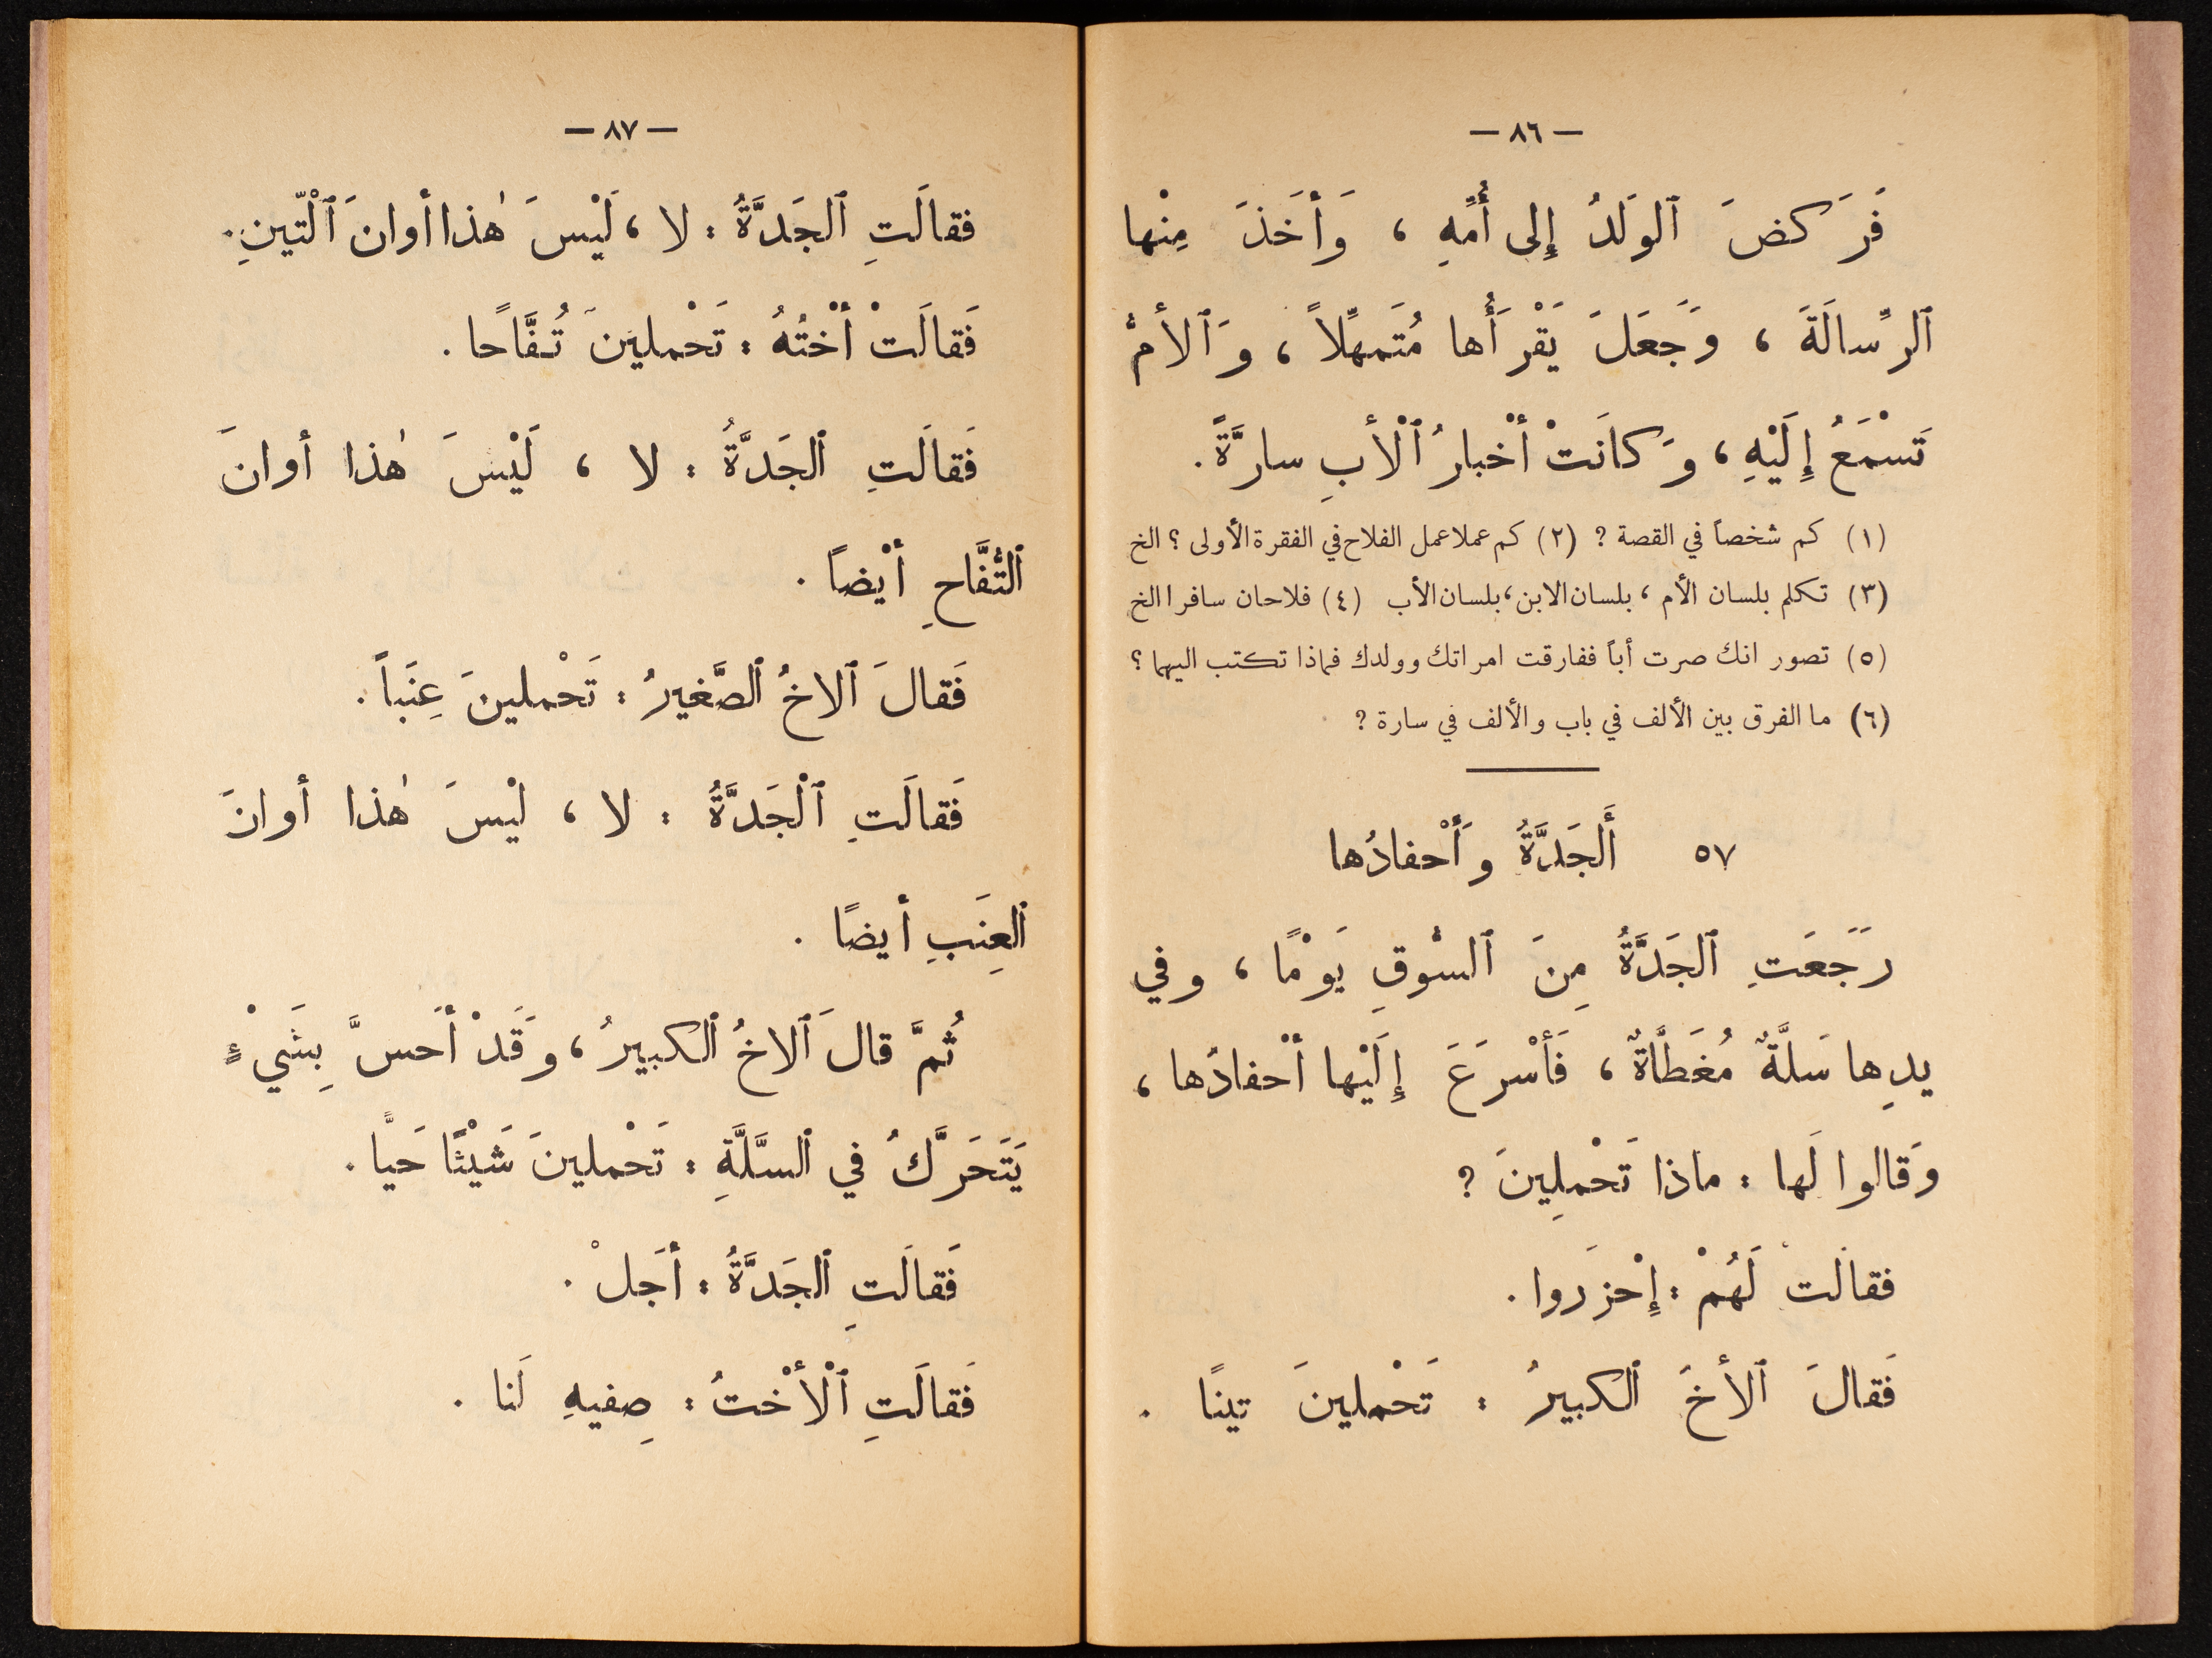 — ٨٦ —
فَرَكضَ ٱلوَلَدُ إِلى أُمِّهِ ، وَأخَذَ مِنْها
ٱلرِّسالَةَ ، وَجَعَلَ يَقْرَأُها مُتَمهِّلاً ، وَٱلأمُّ
تَسْمَعُ إِلَيْهِ ، وَكانَتْ أخْبارُ ٱلْأبِ سارَّةً .
(١) كم شخصاً في القصة ? (٢) كم عملا عمل الفلاح في الفقرة الأولى ؟ الخ
(٣) تكلم بلسان الأم ، بلسان الابن ، بلسان الأب (٤) فلاحان سافرا الخ
(٥) تصور انك صرت أباً ففارقت امراتك وولدك فماذا تكتب اليهما ؟
(٦) ما الفرق بين الألف في باب والألف في سارة ?
٥٧ أَلجَدَّةُ وَأحْفادُها
رَجَعَتِ ٱلجَدَّةُ مِنَ ٱلسُّوقِ يَوْمًا ، وفي
يدِها سَلَّةٌ مُغَطَّاةٌ ، فَأسْرَعَ إِلَيْها أحْفادُها ،
وَقالوا لَها : ماذا تَحْمِلِينَ ?
فقالَتْ لَهُمْ : إِحْزَروا .
فَقالَ ٱلأخُ ٱلكبيرُ : تَحْملينَ تينًا .
— ٨٧ —
فقالَتِ ٱلجَدَّةُ : لا ، لَيْسَ هٰذا أوانَ ٱلْتّينِ .
فَقالَتْ أخْتُهُ : تَحْملينَ تُفَّاحًا .
فَقالَتِ ٱلجَدَّةُ : لا ، لَيْسَ هٰذا أوانَ
ٱلتُّفَّاحِ أيْضاً .
فَقالَ ٱلاخُ ٱلصَّغيرُ : تَحْملينَ عِنَباً .
فَقالَتِ ٱلْجَدَّةُ : لا ، ليْسَ هٰذا أوانَ
ٱلعِنَبِ أيضًا .
ثُمَّ قالَ ٱلاخُ ٱلكبيرُ ، وَقَدْ أحَسَّ بِشَيْءٍ
يَتَحَرَّكُ في ٱلسَّلَّةِ : تَحْملينَ شَيْئًا حَيًّا .
فَقالَتِ ٱلجَدَّةُ : أجَلْ .
فَقالَتِ ٱلْأخْتُ : صِفيهِ لَنا .